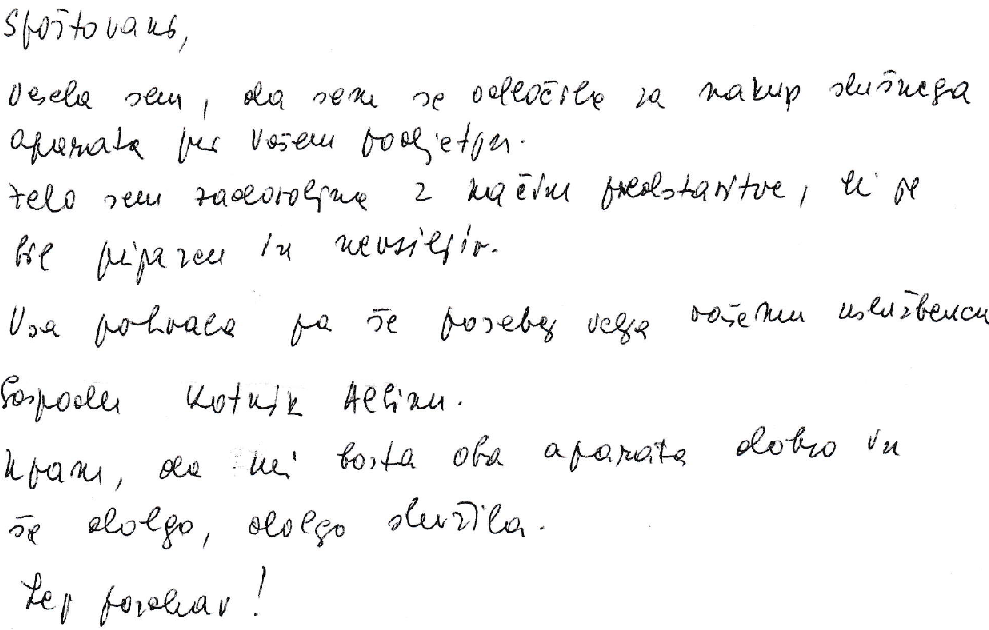 Spoštovani,
vesela sem, da sem se odločila za nakup slušnega
aparata pri vašem podjetju.
Zelo sem zadovoljna z načinom predstavitve, ki je
bil prijazen in nevsiljiv.
Vsa pohvala pa še posebej velja vašemu uslužbencu
Gospodu Kotnik
Upam, da mi bosta oba aparata dobro in
še dolgo, dolgo služila.
Lep pozdrav!